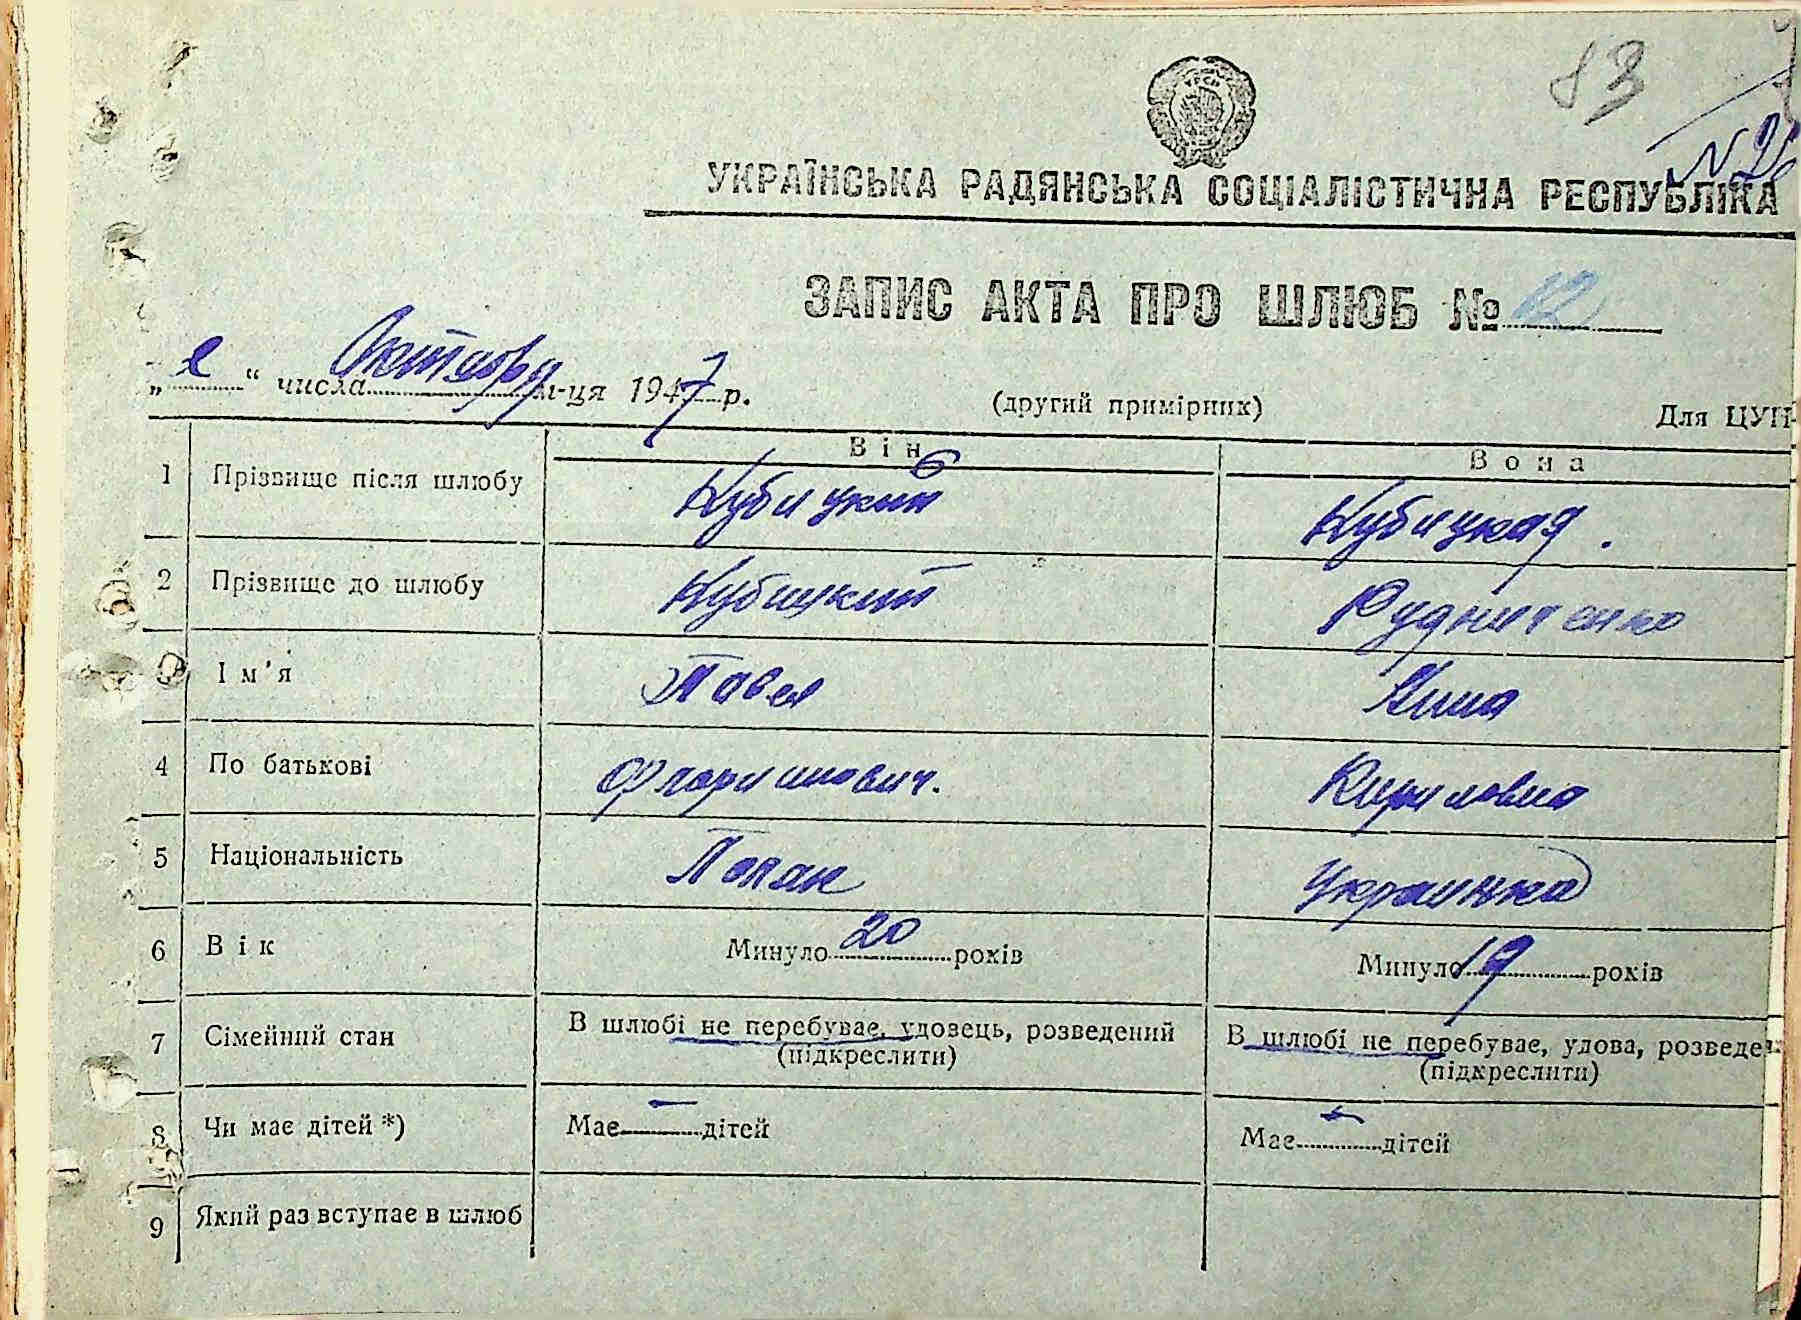 83
УКРАЇНСЬКА РАДЯНСЬКА СОЦІАЛІСТИЧНА РЕСПУБЛІКА
ЗАПИС АКТА ПРО ШЛЮБ № 12
„ “ числа Октября м-ця 1947 р.
(другий примірник) Для ЦУН
Він Вона
1 Прізвище після шлюбу Кубицкий Кубицкая.
2 Прізвище до шлюбу Кубицкий Рудниченко
Ім'я Павел Нина
4 По батькові Флориянович. Кириловна
5 Національність Поляк Украинка
6 Вік Минуло 20 років Минуло 19 років
7 Сімейний стан В шлюбі не перебуває, удовець, розведений В шлюбі не перебуває, удова, розведе
(підкреслити) (підкреслити)
8 Чи має дітей *) Має — дітей Має — дітей
9 Який раз вступає в шлюб